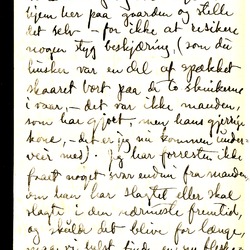 hjem her paa gaarden og stelle
det selv – for ikke at risikere
nogen styg beskjæring, (som du
husker var en del af spækket
skaaret bort paa de to skinkerne
i vaar, – det var ikke manden,
som har gjort, men hans gjerrige
kone, – det er jeg nu kommen under-
veir med). Jeg har forresten ikke
faaet noget svar endnu fra manden,
om han har slagtet eller skal
slagte i den nærmeste fremtid,
og skulde det blive for længe